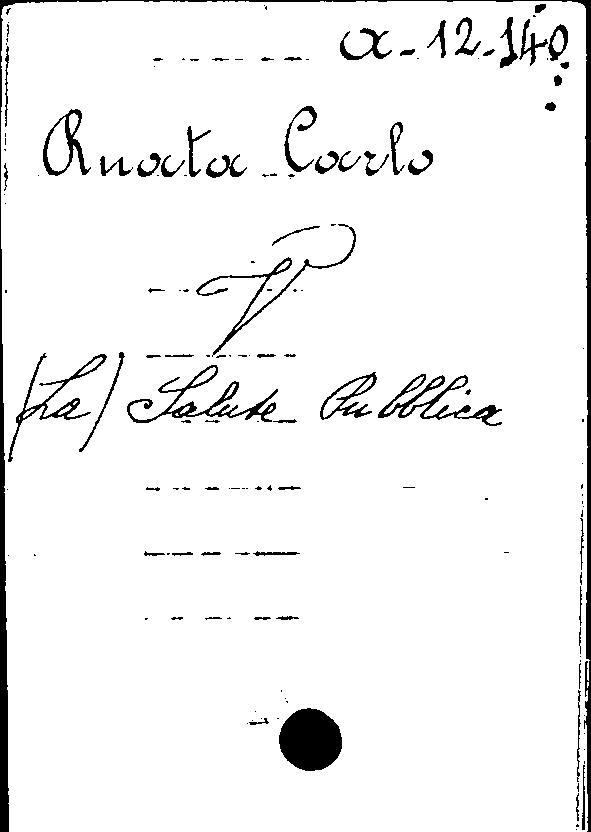 a-12-140
Ruata Carlo
V
(La) Salute Pubblica